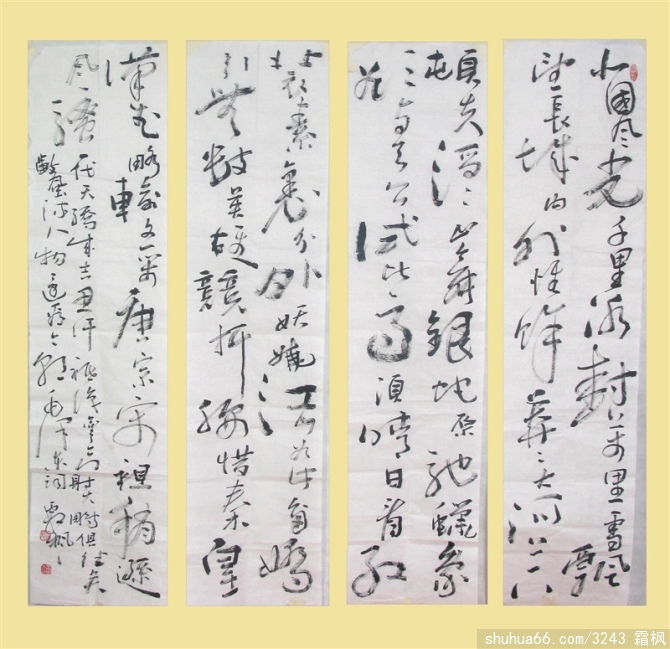 北國风光千里冰封万里雪飘
望长城内外惟餘莽々大河上下
頓失滔々山舞銀蛇原馳蠟象
与天公试比高須晴日看红
装素裹分外妖娆江山如此多嬌
引无數英雄競折腰惜秦皇
漢武略輸文采唐宗宋祖稍遜
风骚
一代天骄成吉思汗祗識弯弓射大雕俱往矣
數風流人物还看今朝毛泽东词霜枫
shuhua66.com/3243 霜枫